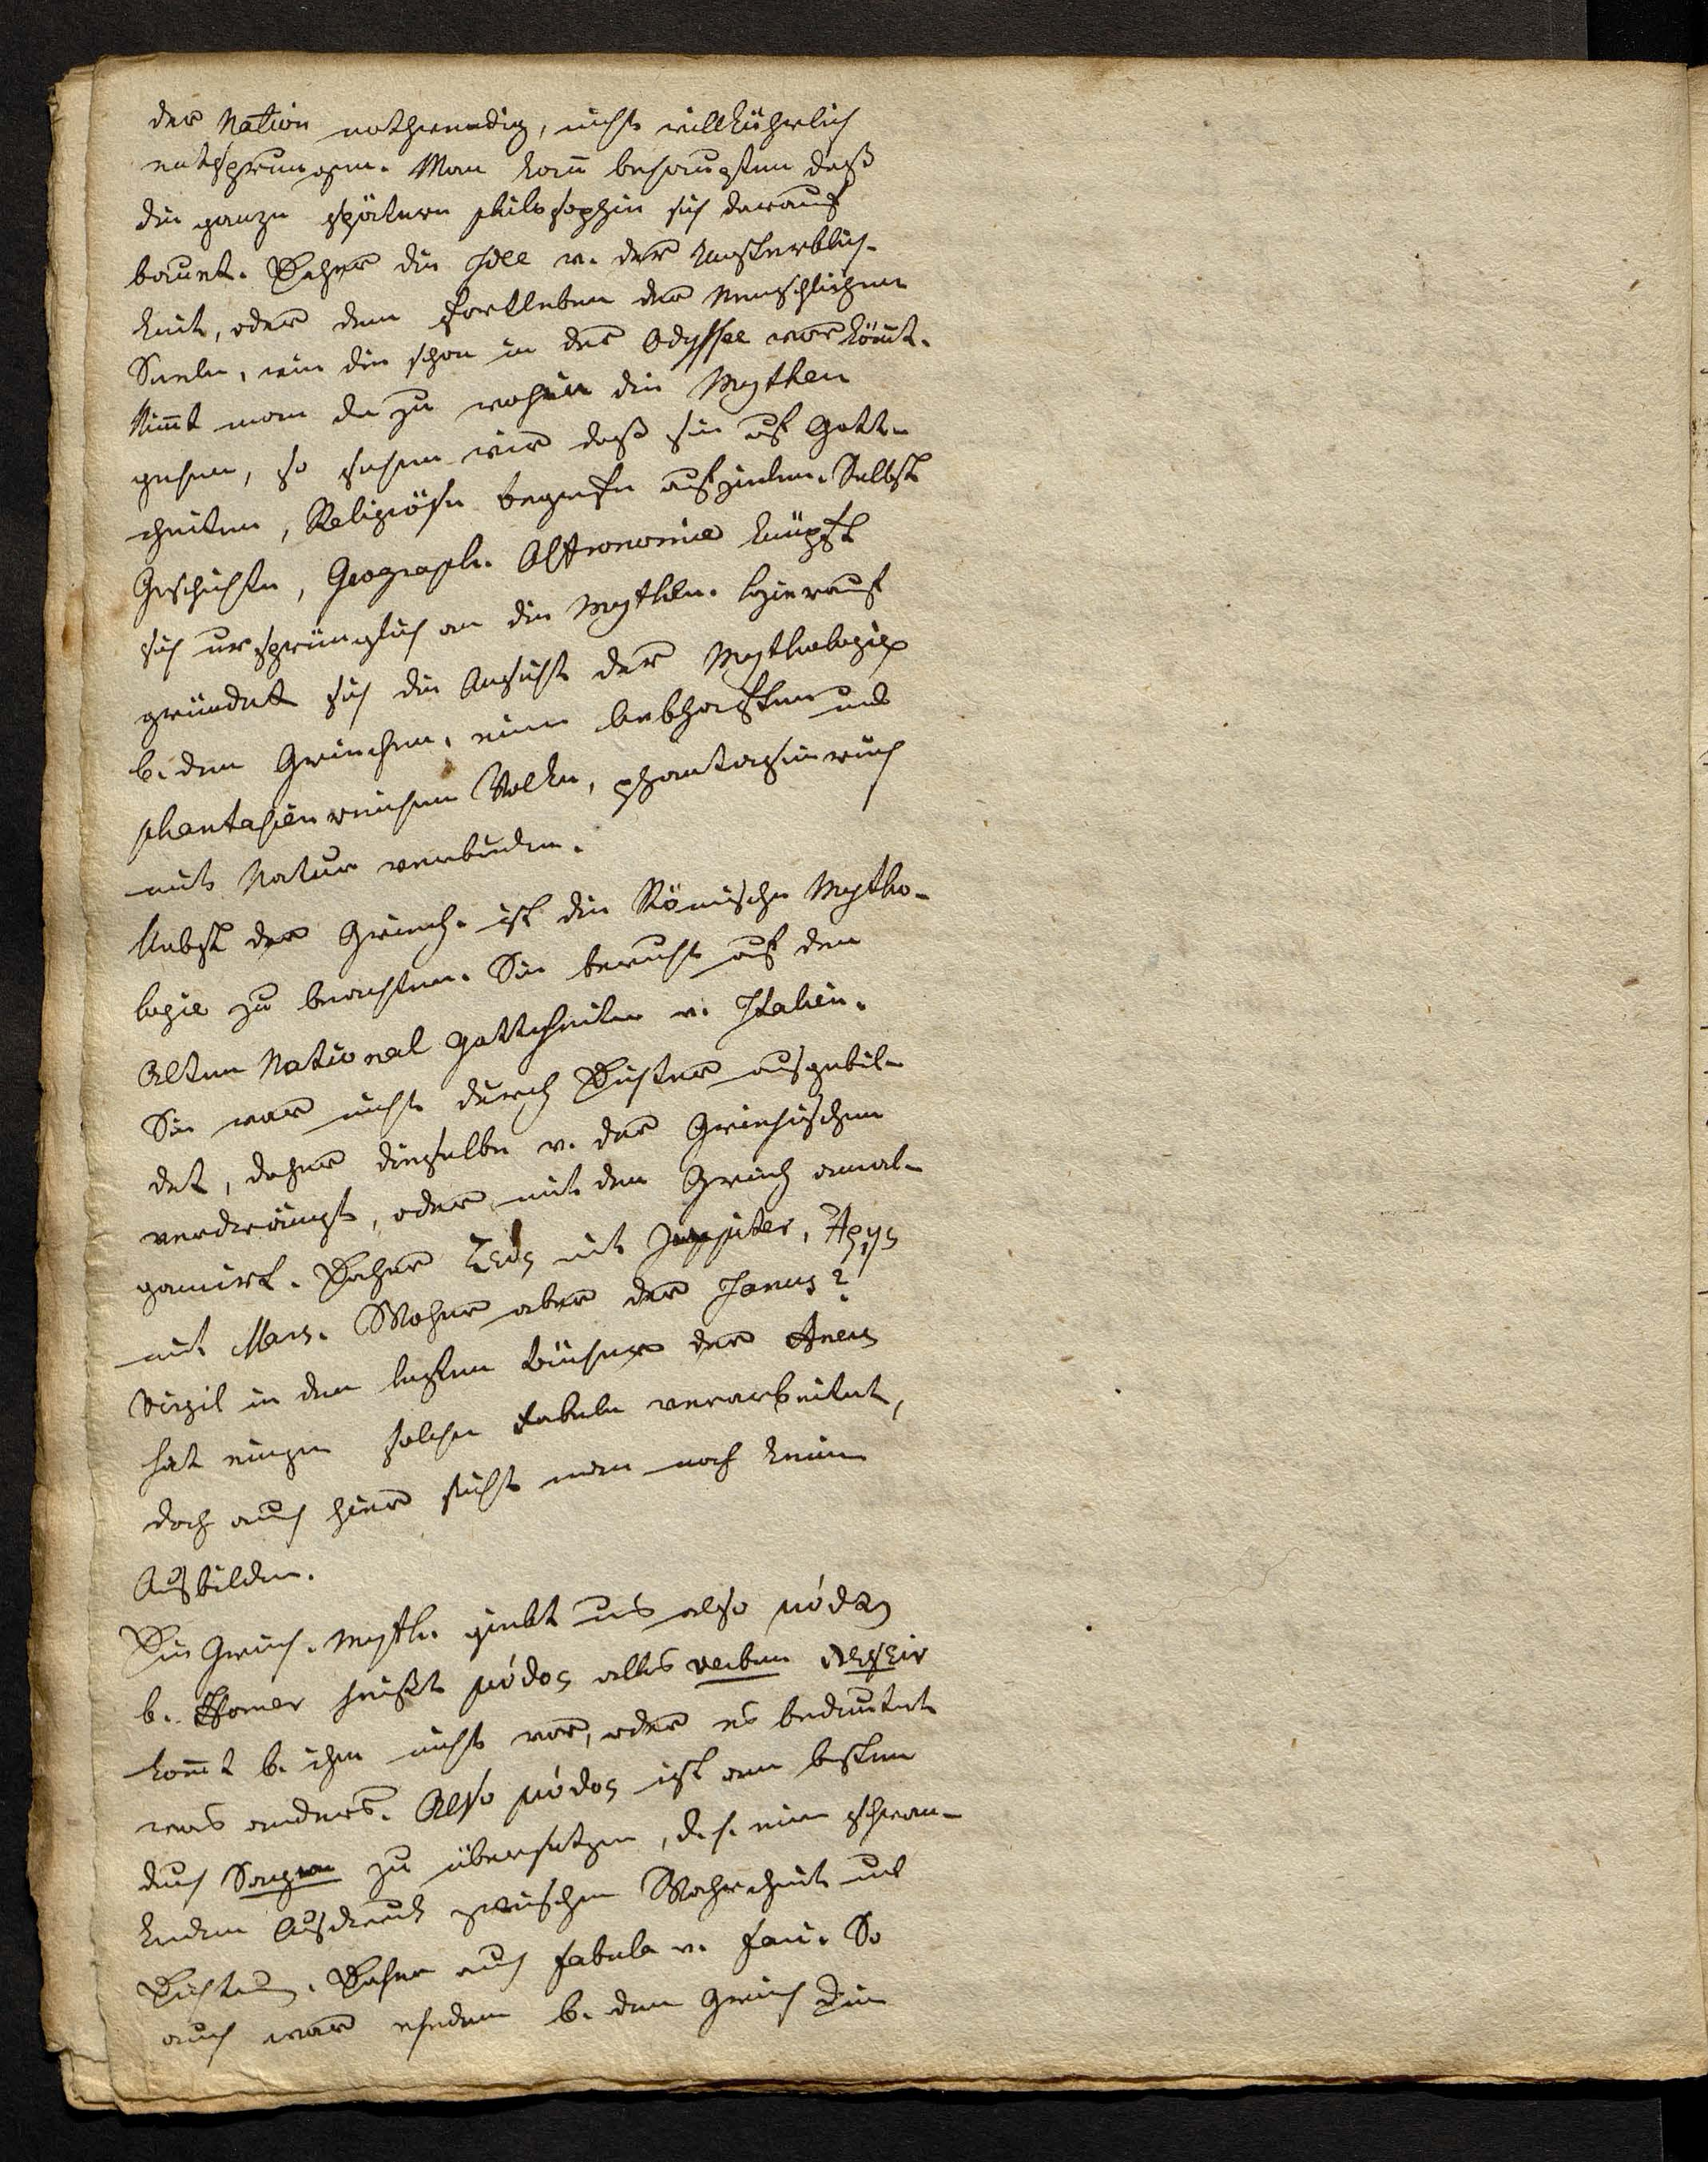 der Nation nothwendig, nicht willkührlich
entsprungen. Man kañ behaupten daß
die ganze spätere philosophie sich darauf
bauet. Daher die Idee v. der Unsterblich-
keit, oder dem Fortleben der Menschlichen
Seele, wie die schon in der Odyssee vorköm̃t.
Nim̃t man da zu wohin die Mythen
gehen, so sehen wir daß sie auf Gott-
heiten, Religiöse begriffe abzielen. Selbst
Geschichte, Geograph. Astronomie knüpft
sich ursprünglich an die Mythen. Hierauf
gründet sich die Ansicht der Mythologie
b. den Griechen, einem lebhaften und
phantasienreichen Volke, phantasiereich
mit Natur verbunden.
Nebst der Griech. ist die Römische Mytho-
logie zu beachten. Sie beruht auf den
Alten National Gottheiten v. Italien.
Sie war nicht durch Dichter ausgebil-
det, daher dieselbe v. der Griechischen
verdrängt, oder mit den Griech amal-
gamirt. Daher Ζεύς mit Juppiter, Ἄρης
mit Mars. Woher aber der Janus?
Virgil in den letzten Büchern der Aneis
hat einige solche Fabeln verarbeitet,
doch auch hier sieht man noch keine
Ausbilden.
Die Griech. Myth. giebt uns also μύθος
b. Homer heißt μύθος alles verbum
kom̃t b. ihm nicht vor, oder es bedeutet
was anders. Also μύθος ist am besten
durch Sagen zu übersetzen, d. h. ein schwan-
kender Ausdruck zwischen Wahrheit und
Dichtung. Daher auch fabula v. fari. So
auch war ehedem b. den Griech die